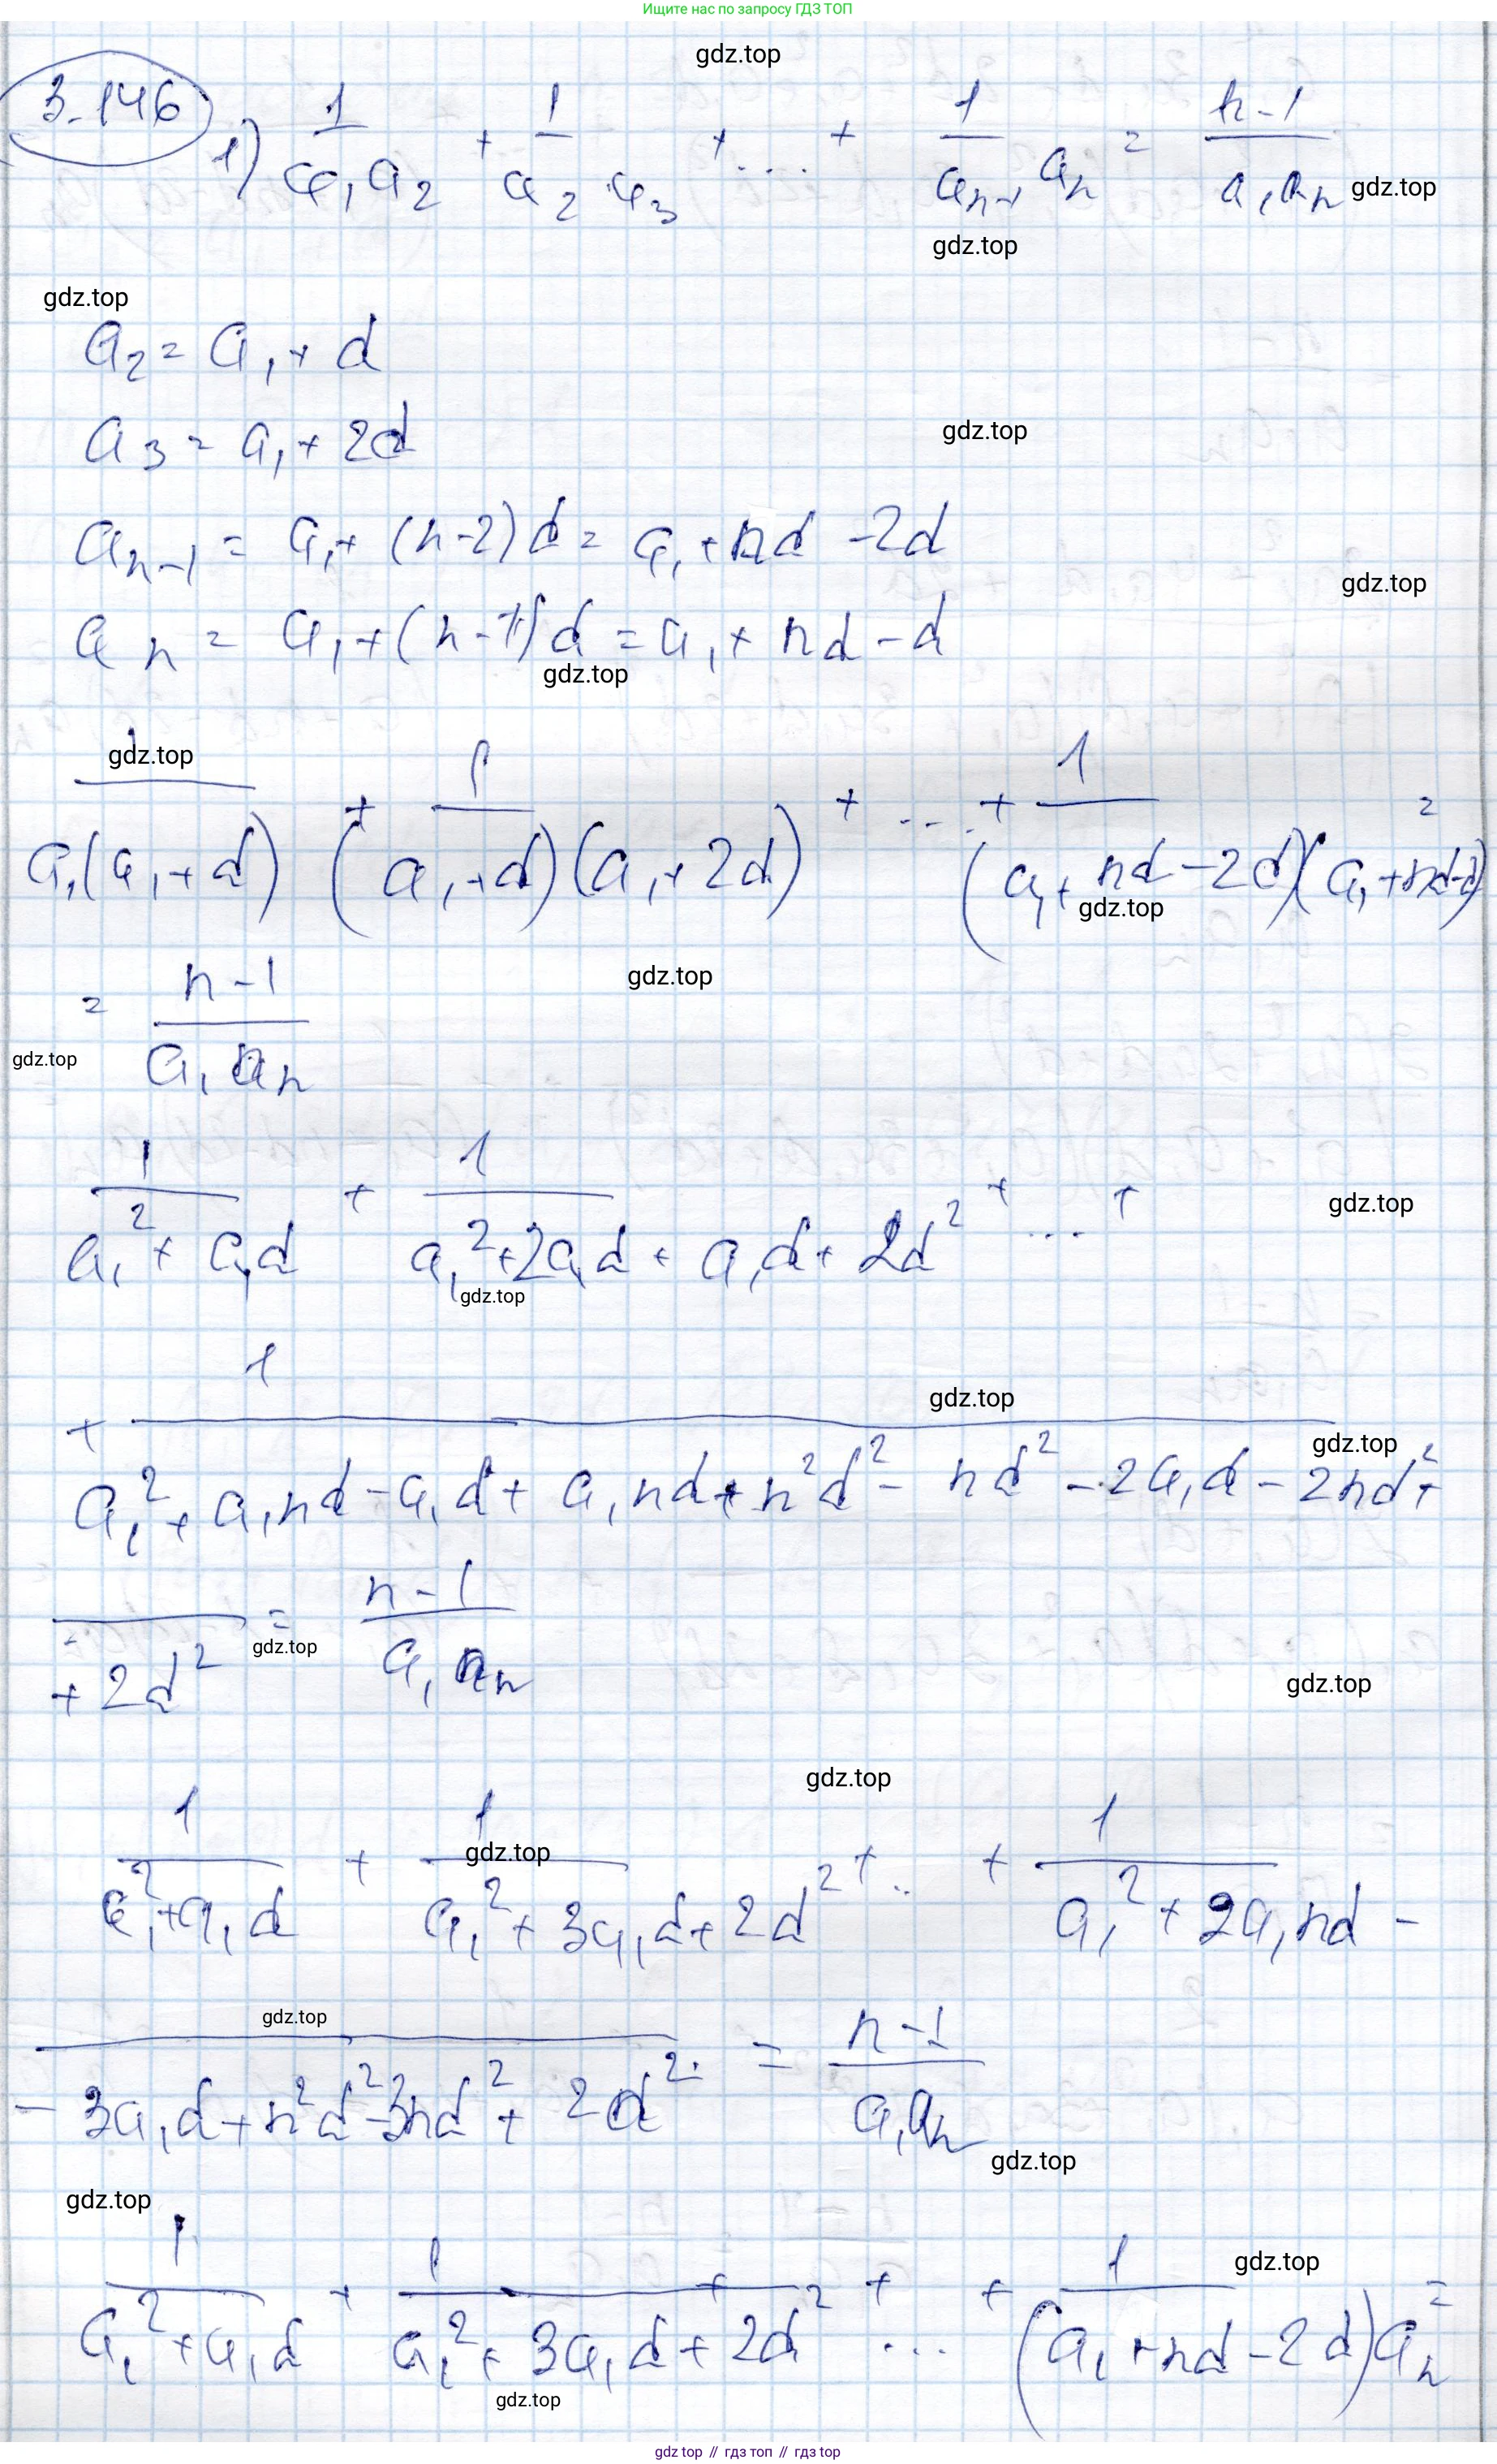 Ищите нас по запросу ГДЗ ТОП
gdz.top
3.146
1) 1/(a₁a₂) + 1/(a₂a₃) + ... + 1/(aₙ₋₁aₙ) = (n-1)/(a₁aₙ) gdz.top
gdz.top
gdz.top
a₂ = a₁ + d
a₃ = a₁ + 2d gdz.top
aₙ₋₁ = a₁ + (n-2)d = a₁ + nd - 2d
gdz.top
aₙ = a₁ + (n-1)d = a₁ + nd - d
gdz.top
gdz.top
1/(a₁(a₁+d)) + 1/((a₁+d)(a₁+2d)) + ... + 1/((a₁+nd-2d)(a₁+nd-d)) =
gdz.top
= (n-1)/(a₁aₙ) gdz.top
gdz.top
1/(a₁²+a₁d) + 1/(a₁²+2a₁d+a₁d+2d²) + ... + gdz.top
gdz.top
gdz.top
+ 1/(a₁²+a₁nd-a₁d+a₁nd+n²d²-nd²-2a₁d-2nd²+
gdz.top
+2d²) = (n-1)/(a₁aₙ)
gdz.top
gdz.top
gdz.top
1/(a₁²+a₁d) + 1/(a₁²+3a₁d+2d²) + .. + 1/(a₁²+2a₁nd-
gdz.top
gdz.top
-3a₁d+n²d²-3nd²+2d²) = (n-1)/(a₁aₙ)
gdz.top
gdz.top
gdz.top
1/(a₁²+a₁d) + 1/(a₁²+3a₁d+2d²) + ... + 1/((a₁+nd-2d)aₙ) =
gdz.top
gdz.top // гдз топ // гдз top